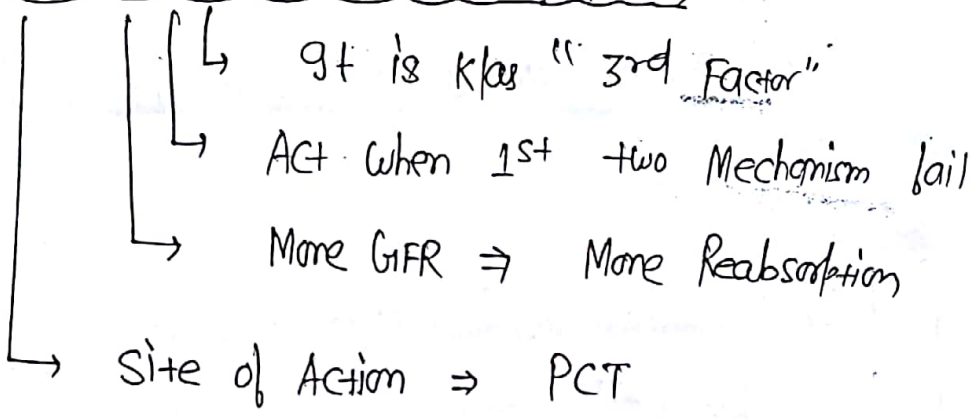 ↳ It is K/as "3rd Factor"
→ Act when 1st two Mechanism fail
→ More GFR ⇒ More Reabsorption
→ Site of Action ⇒ PCT